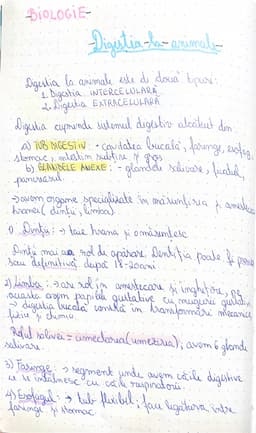 -BIOLOGIE-
-Digestia la animale-
Digestia la animale este de două tipuri:
1. Digestia INTERCELULARĂ
2. Digestia EXTRACELULARĂ
Digestia cuprinde sistemul digestiv alcătuit din
a) TUB DIGESTIV: - cavitatea bucală, faringe, esofag,
stomac, intestin subțire și gros
b) GLANDELE ANEXE: - glandele salivare, ficatul,
pancreasul
→ avem organe specializate în mărunțirea și amestecarea
hranei (dinții, limba)
1) Dinții: → taie hrana și o mărunțesc
Dinții mai au rol de apărare. Dentiția poate fi
sau definitivă după 18-20 ani
2) Limba: → are rol în amestecare și înghițire. Pe
aceasta avem papile gustative cu muguri gustativi
→ digestia bucală constă în transformări mecanice,
fizice și chimice
Rolul salivei = umectarea (umezirea); avem 6 glande
salivare.
3) Faringe: → segment unde avem căile digestive
ce se întâlnesc cu căile respiratorii.
4) Esofagul: → tub flexibil; face legătura între
faringe și stomac